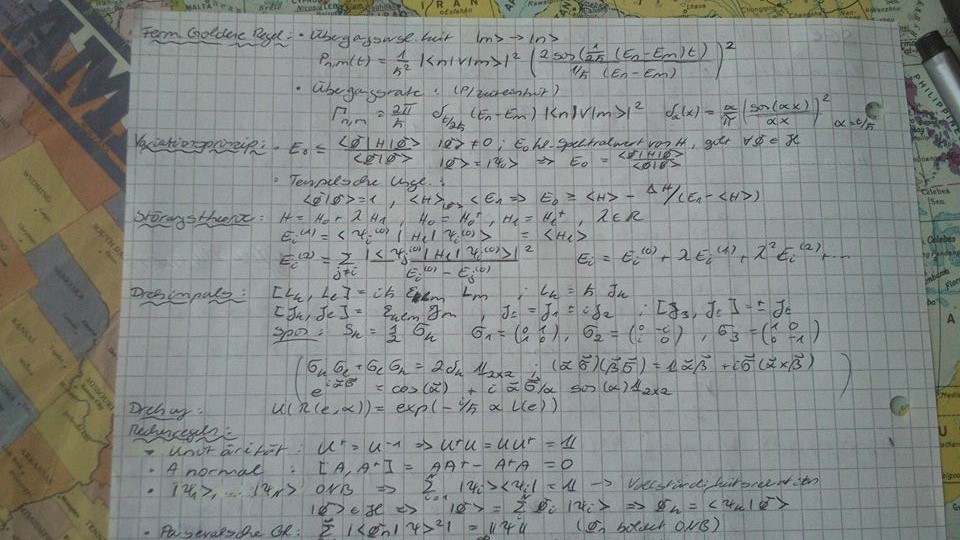 Fermi Goldene Regel: • Übergangswk.heit |m> → |n>
Pn,m(t) = 1/ħ² |<n|V|m>|² (2 sin(1/2ħ (En-Em)t) / 1/ħ (En-Em))²
• Übergangsrate: (P/Zeiteinheit)
Γn,m = 2π/ħ δt/2ħ (En-Em) |<n|V|m>|² δα(x) = α/π (sin(αx)/αx)² α=t/ħ
Variationsprinzip: • E0 ≤ <Φ|H|Φ>/<Φ|Φ> |Φ> ≠ 0 ; E0 kl. Spektralwert von H, gilt ∀Φ∈H
|Φ> = |Ψ0> ⇒ E0 = <Φ|H|Φ>/<Φ|Φ>
• Tempelsche Ungl.:
<Φ|Φ>=1 , <H>Φ < E1 ⇒ E0 ≥ <H> - ΔH/(E1-<H>)
Störungstheorie: H = H0 + λH1 , H0 = H0⁺ , H1 = H1⁺ , λ∈R
Ei⁽¹⁾ = <Ψi⁽⁰⁾|H1|Ψi⁽⁰⁾> = <H1>
Ei⁽²⁾ = Σj≠i |<Ψj⁽⁰⁾|H1|Ψi⁽⁰⁾>|² / Ei⁽⁰⁾ - Ej⁽⁰⁾ Ei = Ei⁽⁰⁾ + λEi⁽¹⁾ + λ²Ei⁽²⁾ + ...
Drehimpuls: [Lk, Le] = iħ εkem Lm ; Lk = ħ Jk
[Jk, Je] = εkem Jm , J± = J1 ± iJ2 ; [J3, J±] = ± J±
Spin: Sk = 1/2 σk σ1 = (0 1 / 1 0) , σ2 = (0 -i / i 0) , σ3 = (1 0 / 0 -1)
(σkσe + σeσk = 2δke 1l2x2 ; (α⃗σ⃗)(β⃗σ⃗) = 1l α⃗β⃗ + iσ⃗(α⃗xβ⃗)
e^(iα⃗σ⃗) = cos(α⃗) + i α⃗σ⃗/α sin(α) 1l2x2)
Drehung: U(R(e,α)) = exp(-i/ħ α L(e))
Rechenregeln:
• Unitärität: U⁺ = U⁻¹ ⇒ U⁺U = UU⁺ = 1l
• A normal: [A, A⁺] = AA⁺ - A⁺A = 0
• |Ψ1>, ... |ΨN> ONB ⇒ Σi=1 N |Ψi><Ψi| = 1l → Vollständigkeitsrelation
|Φ> ∈ H ⇒ |Φ> = Σ Φi |Ψi> ⇒ Φk = <Ψk|Φ>
• Parsevalsche Gl.: Σ |<Φn|Ψ>²| = ||Ψ|| (Φn bildet ONB)